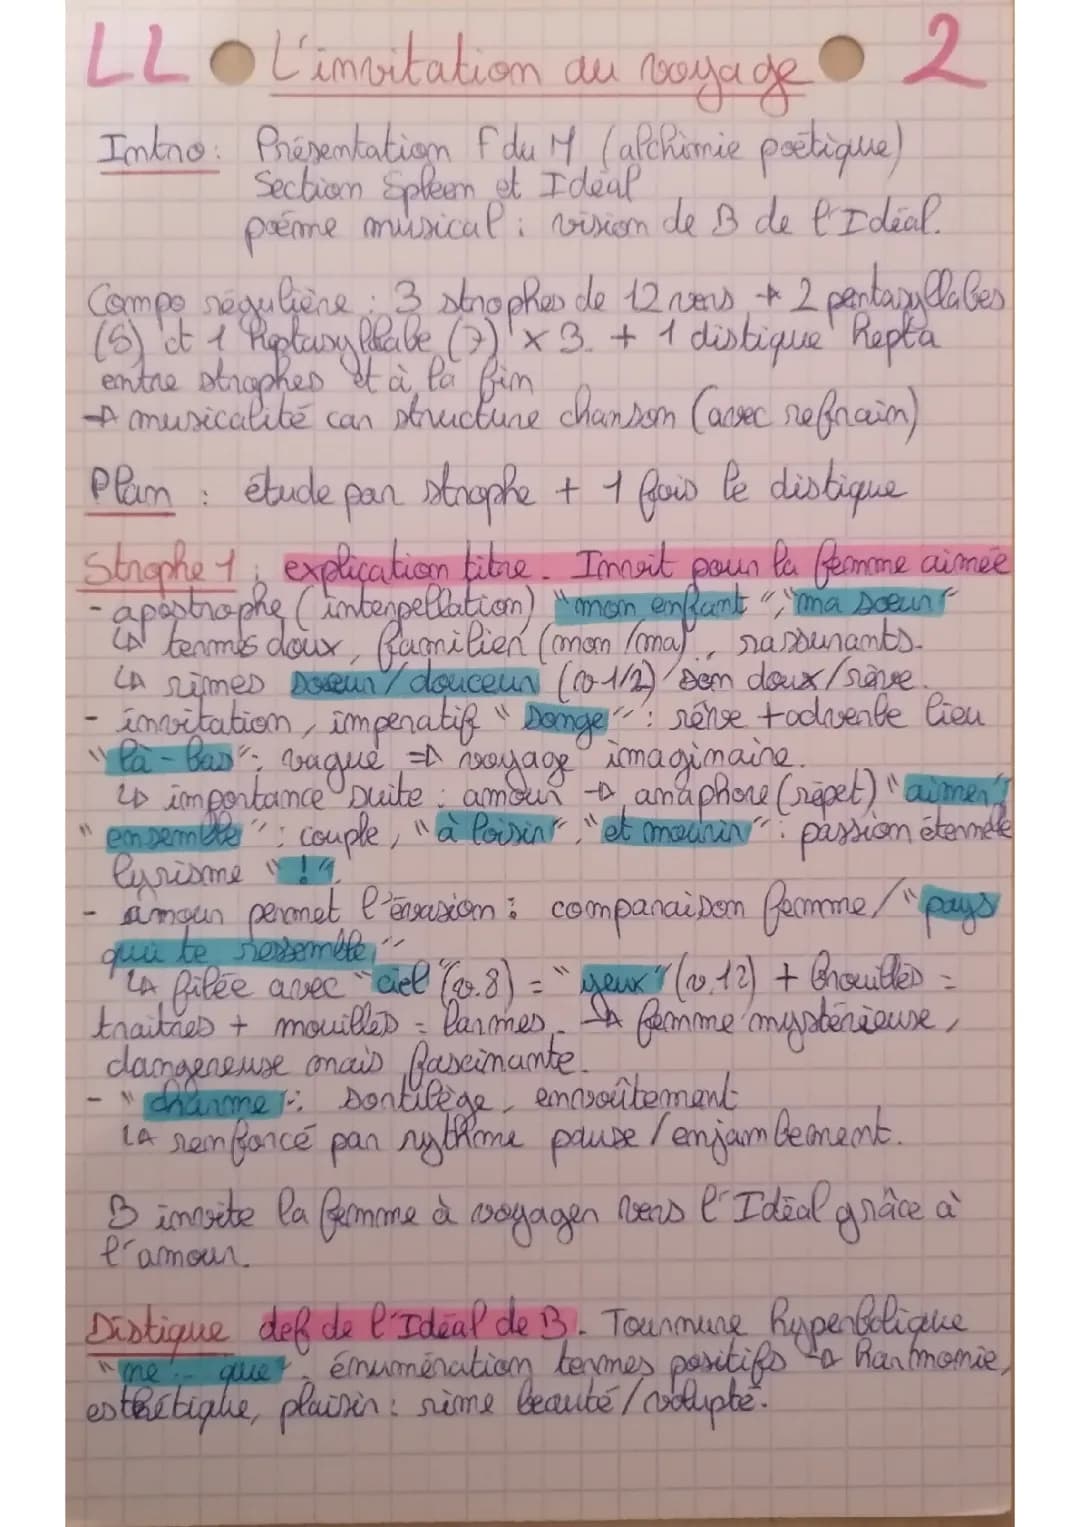 LL L'invitation au voyage 2
Intro : Présentation F du M (alchimie poétique)
Section Spleen et Idéal
poème musical : vision de B de l'Idéal.
Compo régulière : 3 strophes de 12 vers → 2 pentasyllabes
(5) et 1 heptasyllabe (7) x 3. + 1 distique hepta
entre strophes et à la fin
→ musicalité car structure chanson (avec refrain)
Plan : étude par strophe + 1 fois le distique
Strophe 1 : explication titre. Invit pour la femme aimée
- apostrophe (interpellation) "mon enfant", "ma soeur"
↳ termes doux, familier (mon/ma), rassurants.
↳ rimes soeur/douceur (v 1/2) son doux/rêve.
- invitation, impératif "songe" : rêve + adverbe lieu
"là-bas" : vague => voyage imaginaire.
↳ importance suite : amour → anaphore (répét) "aimer"
"ensemble" : couple, "à loisir", "et mourir" : passion éternelle
lyrisme "!".
- amour permet l'évasion : comparaison femme/"pays
qui te ressemble"
↳ filée avec "ciel" (v.8) = "yeux" (v.12) + brouillés =
traitres + mouillés = larmes. → femme mystérieuse,
dangereuse mais fascinante.
- "charme" : sortilège, envoûtement
↳ renforcé par rythme pause/enjambement.
B invite la femme à voyager vers l'Idéal grâce à
l'amour.
Distique def de l'Idéal de B. Tournure hyperbolique
"ne .. que", énumération termes positifs → harmonie,
esthétique, plaisir : rime beauté/volupté.